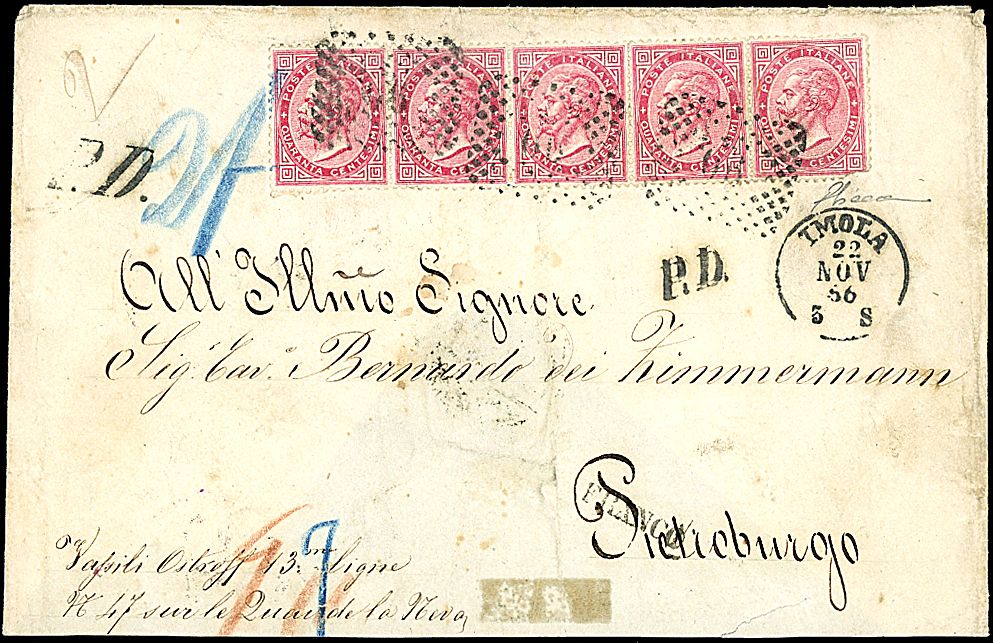 2
POSTE ITALIANE
QUARANTA CENTESIMI
POSTE ITALIANE
QUARANTA CENTESIMI
POSTE ITALIANE
QUARANTA CENTESIMI
POSTE ITALIANE
QUARANTA CENTESIMI
POSTE ITALIANE
QUARANTA CENTESIMI
P.D.
P.D.
IMOLA
22
NOV
66
3 S
All' Illmo Signore
Sig. Cav. Bernardo dei Zimmermann
FRANCO
Pietroburgo
Vassili Ostroff 13.me Ligne
N 47 sur le Quai de la Neva,